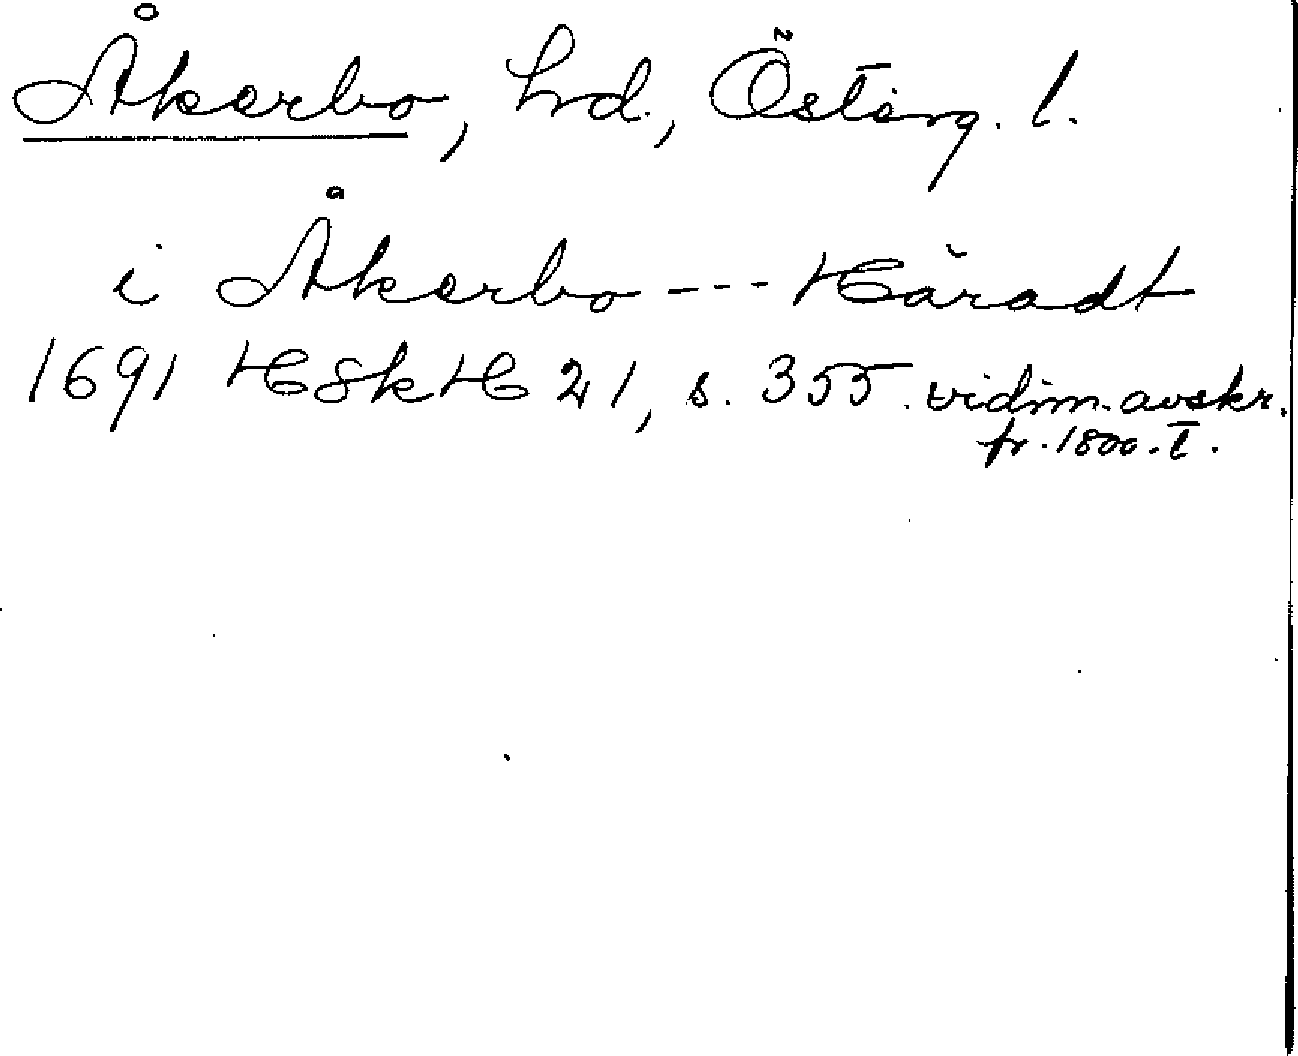 Åkerbo, hd., Österg. l.
i Åkerbo --- Häradt
1691 HSkH 21, s. 355. vidim. avskr.
fr. 1800-t.